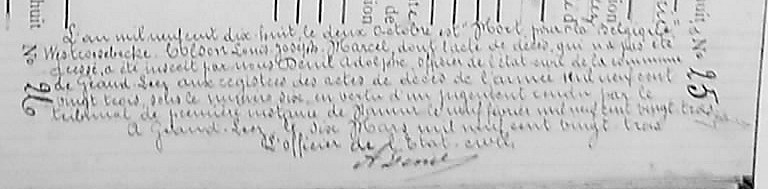 L'an mil neuf cent dix huit, le deux octobre est "Mort pour la Belgique" à
Westroosebeke, Colson Louis Joseph Marcel, dont l'acte de décès, qui n'a pas été
dressé, a été inscrit par nous Denil Adolphe, officier de l'état civil de la commune
de Grand-Leez aux registres des actes de décès de l'année mil neuf cent
vingt trois, sous le numéro dix, en vertu d'un jugement rendu par le
tribunal de première instance de Namur le neuf février mil neuf cent vingt trois
A Grand-Leez, le dix Mars mil neuf cent vingt-trois
L'officier de l'Etat-civil,
huit
N° 26
N° 25